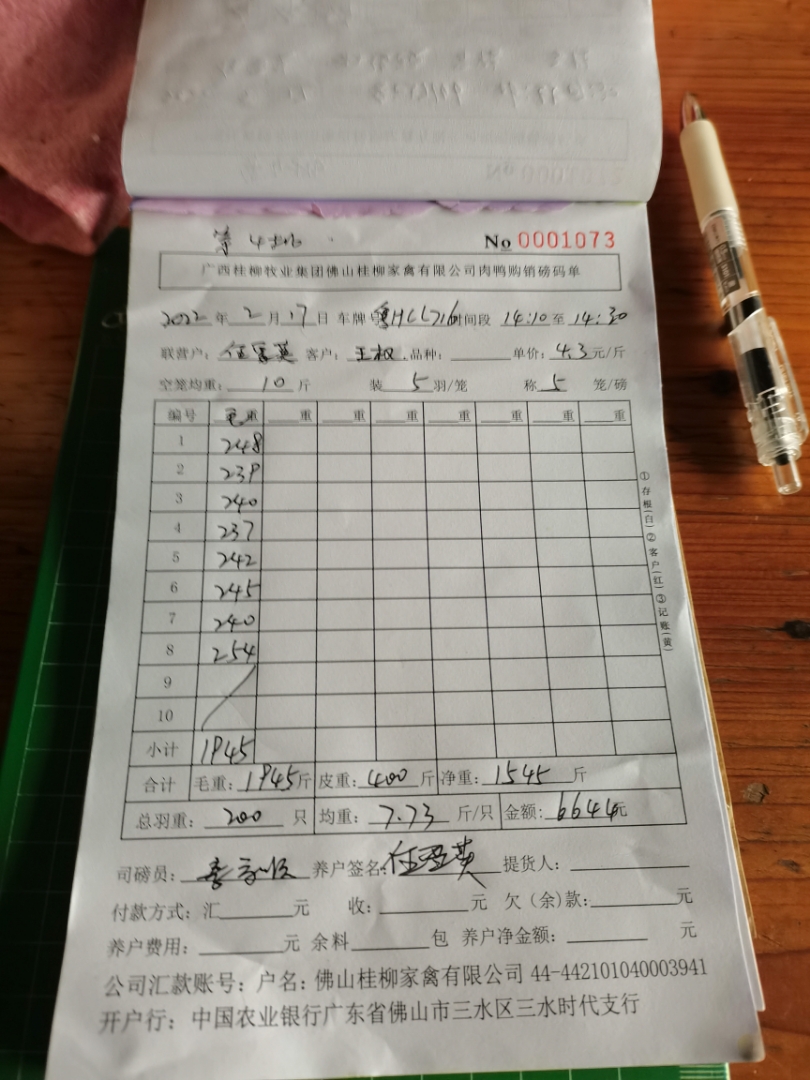 第4批
No 0001073
广西桂柳牧业集团佛山桂柳家禽有限公司肉鸭购销磅码单
2022年2月17日 车牌:粤HCL716 时间段 14:10至14:30
联营户: 客户:王权 品种: 单价:4.3元/斤
空笼均重:10斤 装5羽/笼 称5笼/磅
编号 毛重 重 重 重 重 重 重 重
1 248
2 239
3 240
4 237
5 242
6 245
7 240
8 254
9
10
小计 1945
合计 毛重:1945斤 皮重:400斤 净重:1545斤
总羽重:200只 均重:7.73斤/只 金额:6644元
司磅员: 养户签名: 提货人:
付款方式:汇 元 收: 元 欠(余)款: 元
养户费用: 元 余料 包 养户净金额: 元
公司汇款账号:户名:佛山桂柳家禽有限公司 44-442101040003941
开户行:中国农业银行广东省佛山市三水区三水时代支行
①存根(白)②客户(红)③记账(黄)